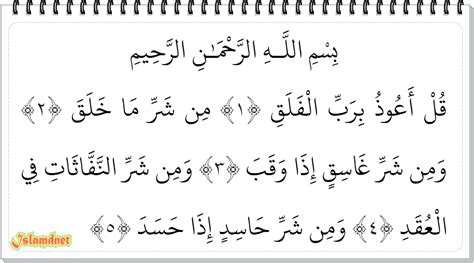 بِسْمِ اللَّـهِ الرَّحْمَـٰنِ الرَّحِيمِ
قُلْ أَعُوذُ بِرَبِّ الْفَلَقِ ﴿١﴾ مِن شَرِّ مَا خَلَقَ ﴿٢﴾
وَمِن شَرِّ غَاسِقٍ إِذَا وَقَبَ ﴿٣﴾ وَمِن شَرِّ النَّفَّاثَاتِ فِي
الْعُقَدِ ﴿٤﴾ وَمِن شَرِّ حَاسِدٍ إِذَا حَسَدَ ﴿٥﴾
Islamdnet